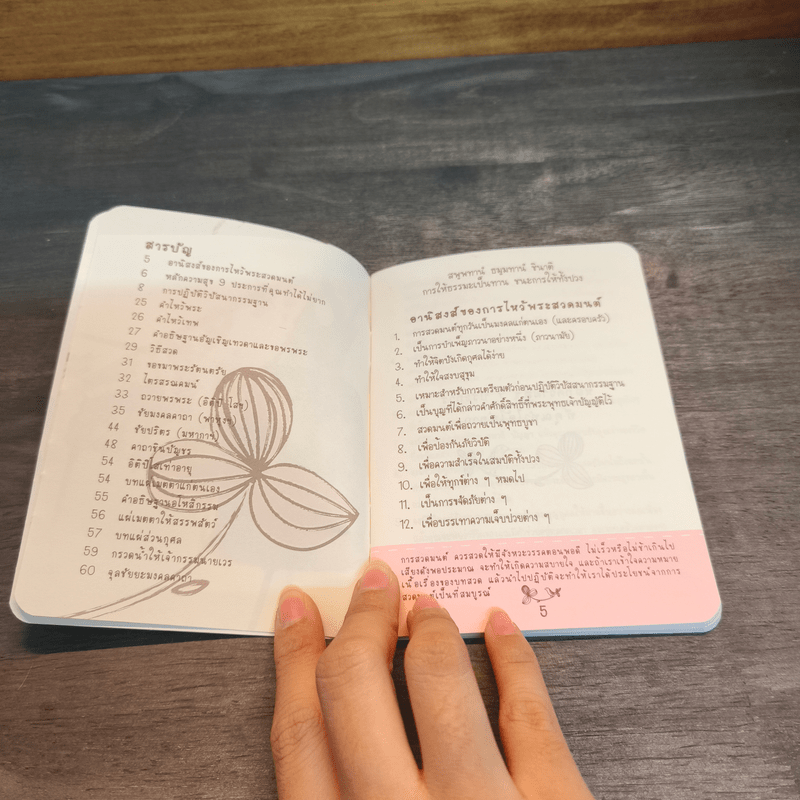 สารบัญ
5 อานิสงส์ของการไหว้พระสวดมนต์
6 หลักความสุข 9 ประการที่คุณทำได้ไม่ยาก
8 การปฏิบัติวิปัสสนากรรมฐาน
25 คำไหว้พระ
26 คำไหว้เทพ
27 คำอธิษฐานอัญเชิญเทวดาและขอพรพระ
29 วิธีสวด
31 ขอขมาพระรัตนตรัย
32 ไตรสรณคมน์
33 ถวายพรพระ (อิติปิ โสฯ)
35 ชัยมงคลคาถา (พาหุงฯ)
44 ชัยปริตร (มหากาฯ)
48 คาถาชินบัญชร
54 อิติปิโสเท่าอายุ
54 บทแผ่เมตตาแก่ตนเอง
55 คำอธิษฐานอโหสิกรรม
56 แผ่เมตตาให้สรรพสัตว์
57 บทแผ่ส่วนกุศล
59 กรวดน้ำให้เจ้ากรรมนายเวร
60 จุลชัยยะมงคลคาถา
สพฺพทานํ ธมฺมทานํ ชินาติ
การให้ธรรมะเป็นทาน ชนะการให้ทั้งปวง
อานิสงส์ของการไหว้พระสวดมนต์
1. การสวดมนต์ทุกวันเป็นมงคลแก่ตนเอง (และครอบครัว)
2. เป็นการบำเพ็ญภาวนาอย่างหนึ่ง (ภาวนามัย)
3. ทำให้จิตบังเกิดกุศลได้ง่าย
4. ทำให้ใจสงบสุขุม
5. เหมาะสำหรับการเตรียมตัวก่อนปฏิบัติวิปัสสนากรรมฐาน
6. เป็นบุญที่ได้กล่าวคำศักดิ์สิทธิ์ที่พระพุทธเจ้าบัญญัติไว้
7. สวดมนต์เพื่อถวายเป็นพุทธบูชา
8. เพื่อป้องกันภัยวิบัติ
9. เพื่อความสำเร็จในสมบัติทั้งปวง
10. เพื่อให้ทุกข์ต่าง ๆ หมดไป
11. เป็นการขจัดภัยต่าง ๆ
12. เพื่อบรรเทาความเจ็บป่วยต่าง ๆ
การสวดมนต์ ควรสวดให้มีจังหวะวรรคตอนพอดี ไม่เร็วหรือไม่ช้าเกินไป
เสียงดังพอประมาณ จะทำให้เกิดความสบายใจ และถ้าเราเข้าใจความหมาย
เนื้อเรื่องของบทสวด แล้วนำไปปฏิบัติจะทำให้เราได้ประโยชน์จากการ
สวดมนต์เป็นที่สมบูรณ์
5